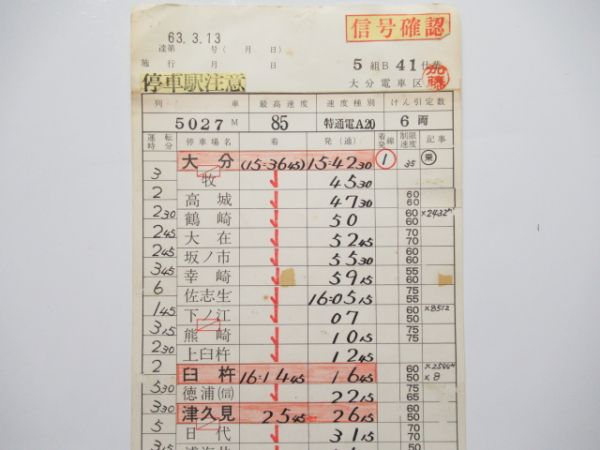 63.3.13
信号確認
達第 号(月 日)
施行 月 日
5組B 41仕業
停車駅注意
大分電車区
列車 最高速度 速度種別 けん引定数
5027M 85 特通電A20 6両
運転時分 停車場名 着 発(通) 着発線 制限速度 記事
大分 (15=36 45) 15=42 30 1 35 乗
3
牧 45 30
2
高城 47 30 60 60
2 30
鶴崎 50 60 60 ×2432M
2 45
大在 52 45 70 70
2 45
坂ノ市 55 30 60 70
3 45
幸崎 59 15 55 60
6
佐志生 16=05 15 75 55
1 45
下ノ江 07 60 50 ×8512
3 15
熊崎 10 15 75 75
2 30
上臼杵 12 45
2
臼杵 16=14 45 16 45 60 50 ×8
5 30
徳浦(信) 22 15 75 65
3 30
津久見 25 45 26 15 60 50
5
日代 31 15 70
3 15